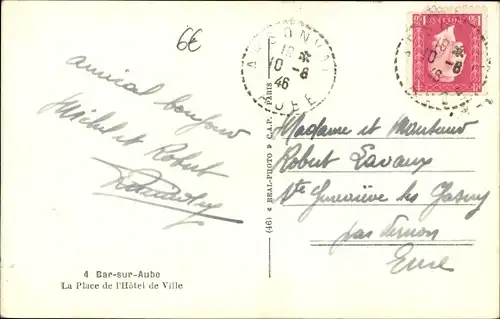 6€
amical bonjour
Michel et Robert
ARSONVAL
18 *
10 -8
46
AUBE
4 Bar-sur-Aube
La Place de l'Hôtel de Ville
(46) « REAL-PHOTO » C.A.P. PARIS
Madame et Monsieur
Robert Lavaux
Ste Geneviève les Gasny
par Vernon
Eure